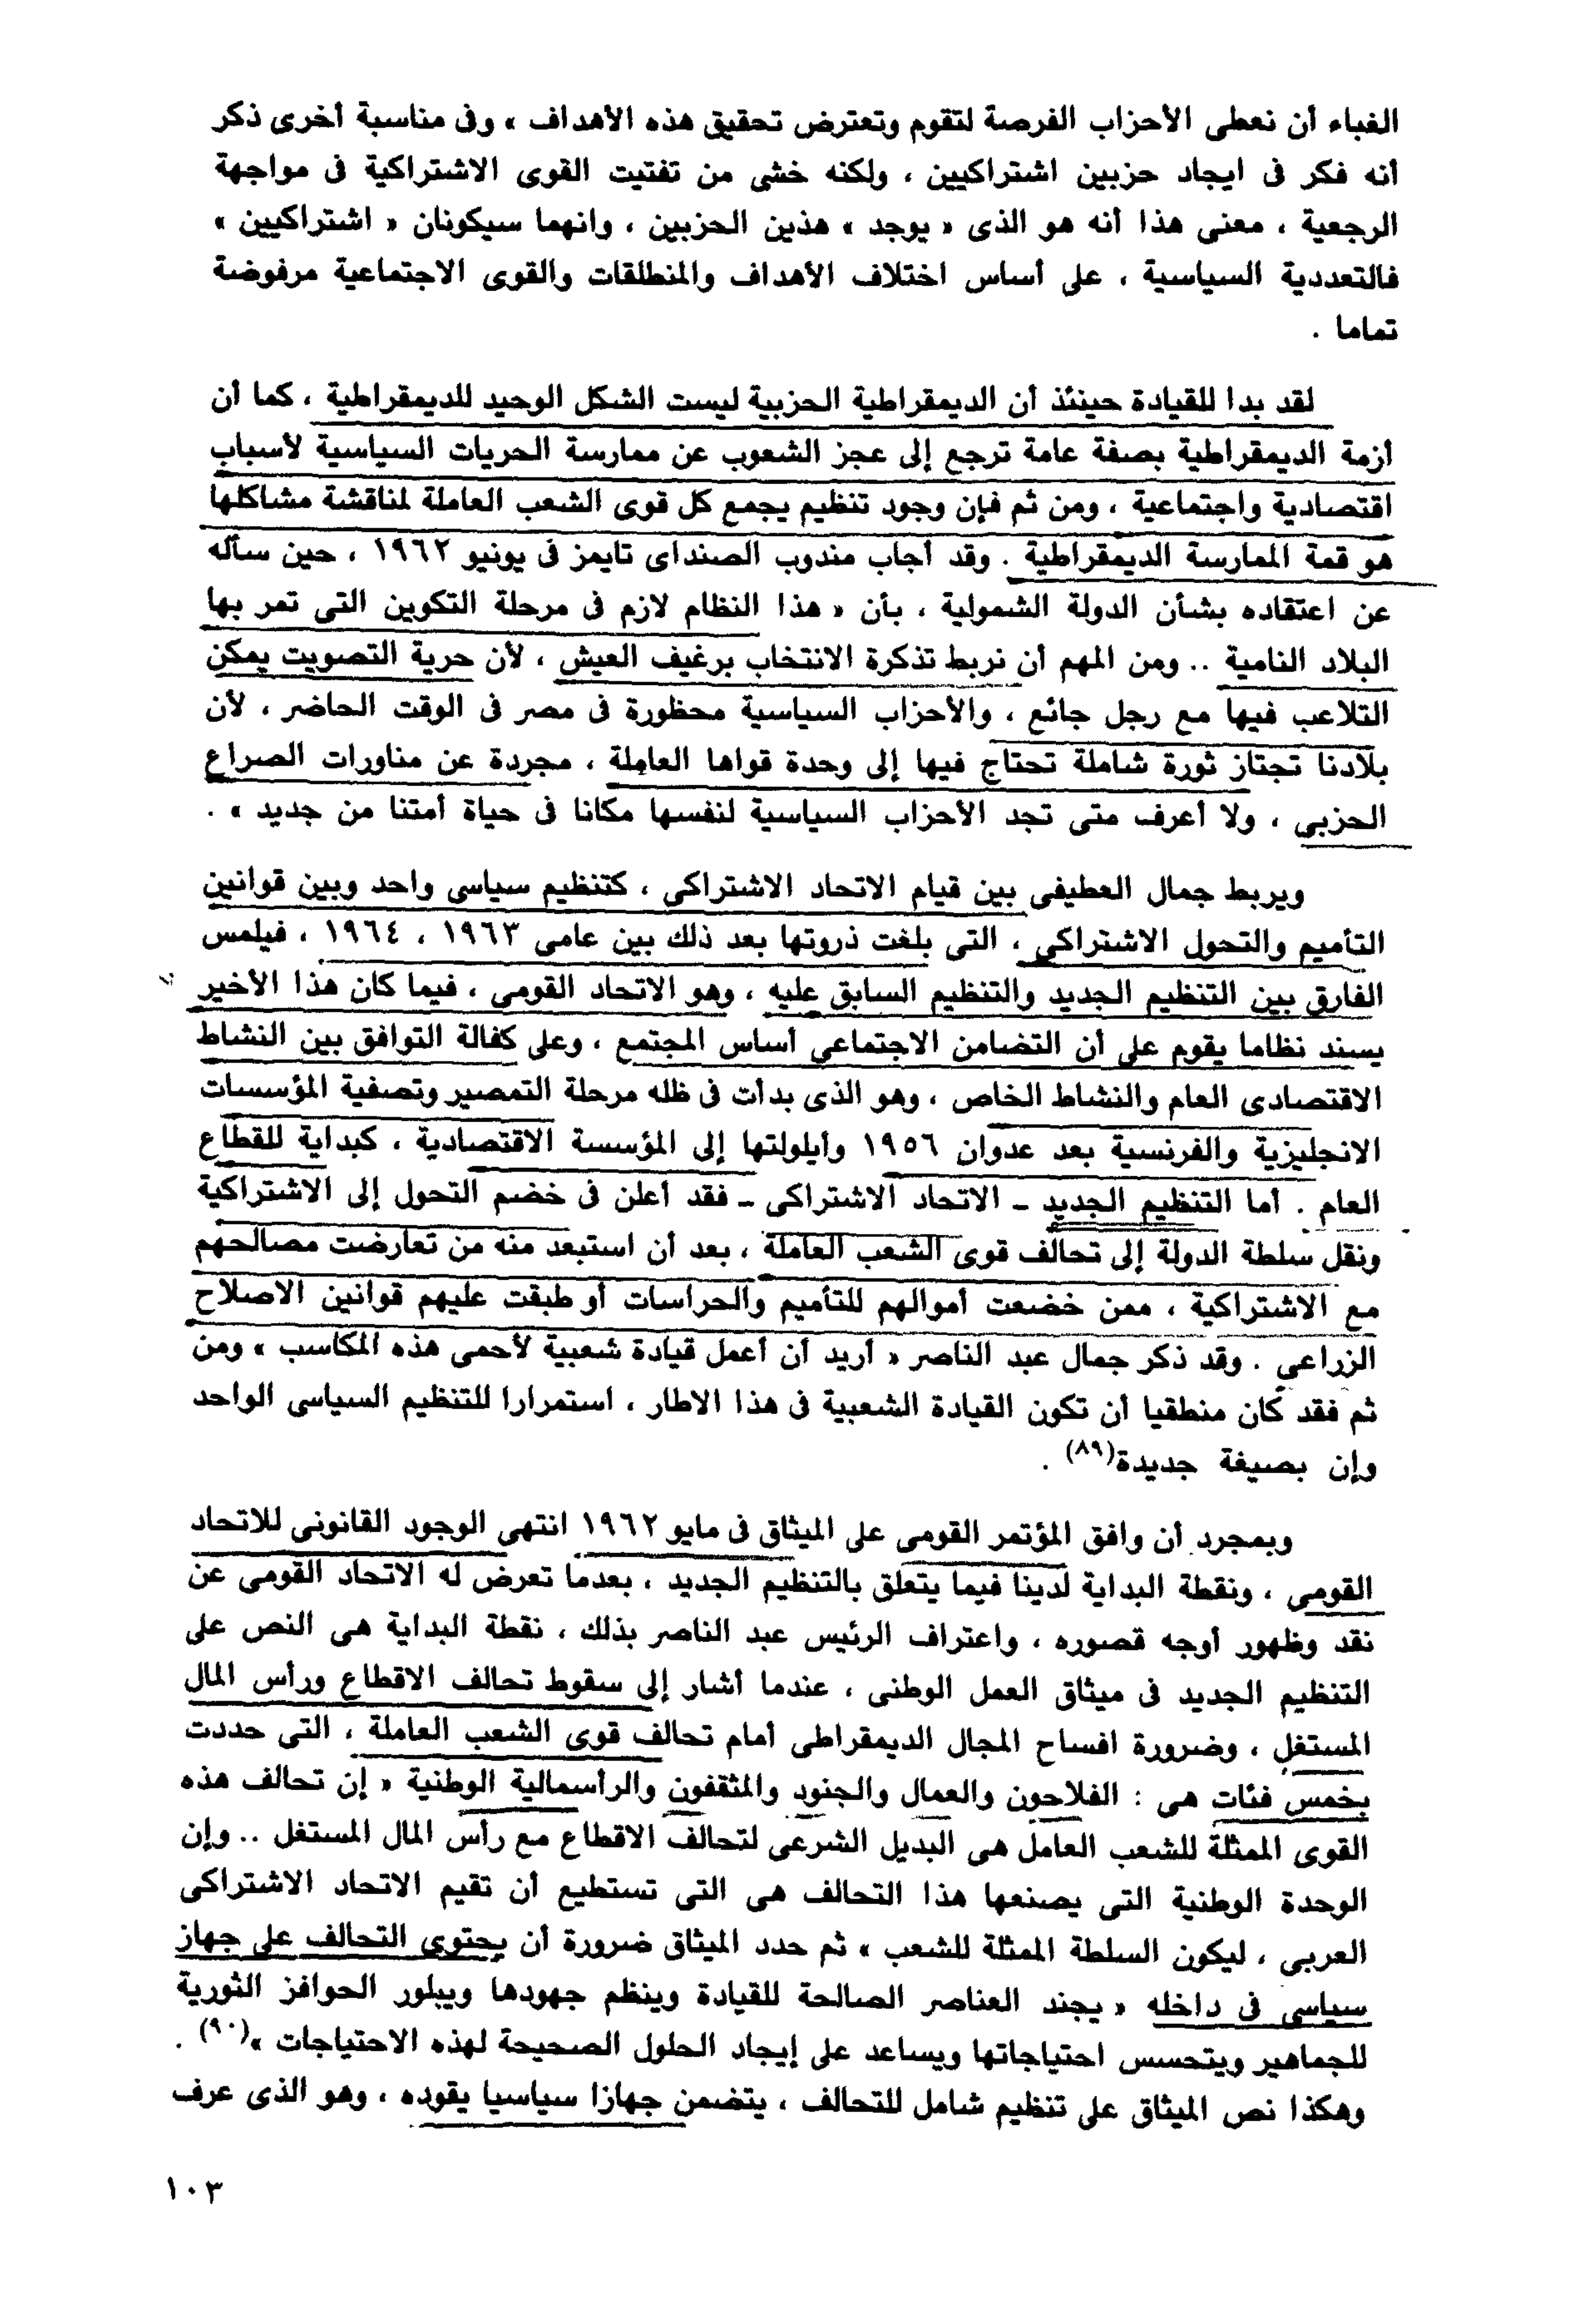 الغباء أن نعطى الأحزاب الفرصة لتقوم وتعترض تحقيق هذه الأهداف » وفى مناسبة أخرى ذكر
أنه فكر فى ايجاد حزبين اشتراكيين ، ولكنه خشى من تفتيت القوى الاشتراكية فى مواجهة
الرجعية ، معنى هذا أنه هو الذى « يوجد » هذين الحزبين ، وانهما سيكونان « اشتراكيين »
فالتعددية السياسية ، على أساس اختلاف الأهداف والمنطلقات والقوى الاجتماعية مرفوضة
تماما .
لقد بدا للقيادة حينئذ أن الديمقراطية الحزبية ليست الشكل الوحيد للديمقراطية ، كما أن
أزمة الديمقراطية بصفة عامة ترجع إلى عجز الشعوب عن ممارسة الحريات السياسية لأسباب
اقتصادية واجتماعية ، ومن ثم فإن وجود تنظيم يجمع كل قوى الشعب العاملة لمناقشة مشاكلها
هو قمة الممارسة الديمقراطية . وقد أجاب مندوب الصنداى تايمز فى يونيو ١٩٦٢ ، حين سأله
عن اعتقاده بشأن الدولة الشمولية ، بأن « هذا النظام لازم فى مرحلة التكوين التى تمر بها
البلاد النامية .. ومن المهم أن نربط تذكرة الانتخاب برغيف العيش ، لأن حرية التصويت يمكن
التلاعب فيها مع رجل جائع ، والأحزاب السياسية محظورة فى مصر فى الوقت الحاضر ، لأن
بلادنا تجتاز ثورة شاملة تحتاج فيها إلى وحدة قواها العاملة ، مجردة عن مناورات الصراع
الحزبى ، ولا أعرف متى تجد الأحزاب السياسية لنفسها مكانا فى حياة أمتنا من جديد » .
ويربط جمال العطيفى بين قيام الاتحاد الاشتراكى ، كتنظيم سياسى واحد وبين قوانين
التأميم والتحول الاشتراكى ، التى بلغت ذروتها بعد ذلك بين عامى ١٩٦٣ ، ١٩٦٤ ، فيلمس
الفارق بين التنظيم الجديد والتنظيم السابق عليه ، وهو الاتحاد القومى ، فيما كان هذا الأخير
يسند نظاما يقوم على أن التضامن الاجتماعى أساس المجتمع ، وعلى كفالة التوافق بين النشاط
الاقتصادى العام والنشاط الخاص ، وهو الذى بدأت فى ظله مرحلة التمصير وتصفية المؤسسات
الانجليزية والفرنسية بعد عدوان ١٩٥٦ وأيلولتها إلى المؤسسة الاقتصادية ، كبداية للقطاع
العام . أما التنظيم الجديد ـ الاتحاد الاشتراكى ـ فقد أعلن فى خضم التحول إلى الاشتراكية
ونقل سلطة الدولة إلى تحالف قوى الشعب العاملة ، بعد أن استبعد منه من تعارضت مصالحهم
مع الاشتراكية ، ممن خضعت أموالهم للتأميم والحراسات أو طبقت عليهم قوانين الاصلاح
الزراعى . وقد ذكر جمال عبد الناصر « أريد أن أعمل قيادة شعبية لأحمى هذه المكاسب » ومن
ثم فقد كان منطقيا أن تكون القيادة الشعبية فى هذا الاطار ، استمرارا للتنظيم السياسى الواحد
وإن بصيغة جديدة(٨٩) .
وبمجرد أن وافق المؤتمر القومى على الميثاق فى مايو ١٩٦٢ انتهى الوجود القانونى للاتحاد
القومى ، ونقطة البداية لدينا فيما يتعلق بالتنظيم الجديد ، بعدما تعرض له الاتحاد القومى عن
نقد وظهور أوجه قصوره ، واعتراف الرئيس عبد الناصر بذلك ، نقطة البداية هى النص على
التنظيم الجديد فى ميثاق العمل الوطنى ، عندما أشار إلى سقوط تحالف الاقطاع ورأس المال
المستغل ، وضرورة افساح المجال الديمقراطى أمام تحالف قوى الشعب العاملة ، التى حددت
بخمس فئات هى : الفلاحون والعمال والجنود والمثقفون والرأسمالية الوطنية « إن تحالف هذه
القوى الممثلة للشعب العامل هى البديل الشرعى لتحالف الاقطاع مع رأس المال المستغل .. وإن
الوحدة الوطنية التى يصنعها هذا التحالف هى التى تستطيع أن تقيم الاتحاد الاشتراكى
العربى ، ليكون السلطة الممثلة للشعب » ثم حدد الميثاق ضرورة أن يحتوى التحالف على جهاز
سياسى فى داخله « يجند العناصر الصالحة للقيادة وينظم جهودها ويبلور الحوافز الثورية
للجماهير ويتحسس احتياجاتها ويساعد على إيجاد الحلول الصحيحة لهذه الاحتياجات »(٩٠) .
وهكذا نص الميثاق على تنظيم شامل للتحالف ، يتضمن جهازا سياسيا يقوده ، وهو الذى عرف
١٠٣